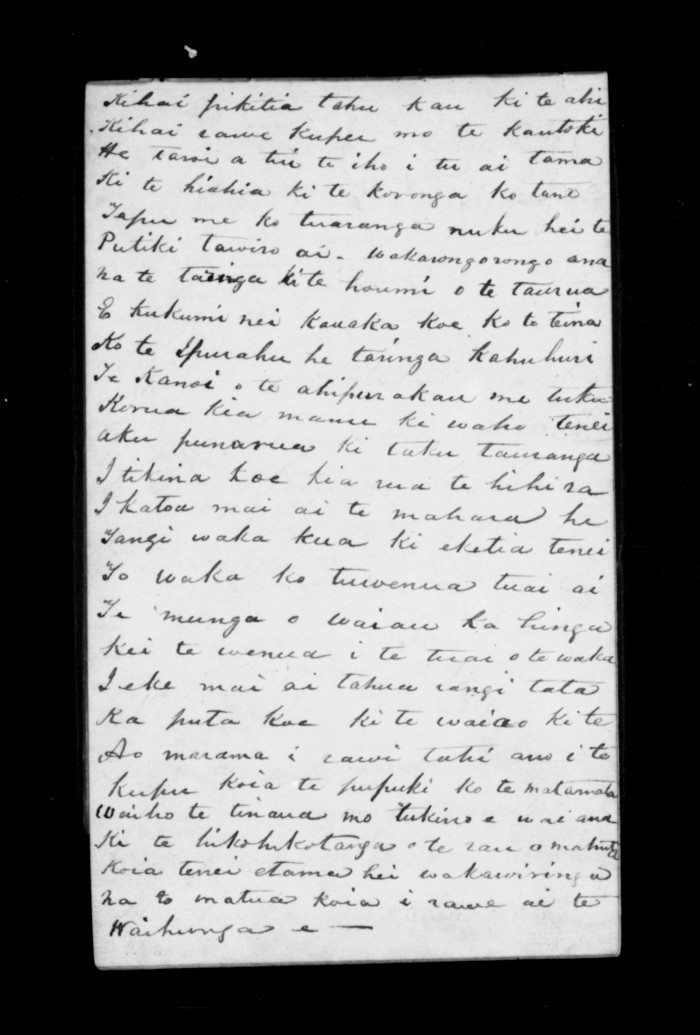 Kihai pikitia tahu kau ki te ahi
Kihai rawe kupu mo te kautoki
He tawi a tu te iho i tu ai tama
Ki te hiahia ki te koronga ko tane
Tapu me ko tuaranga nuku hei te
Putiki tawiro ai - wakarongorongo ana
na te taringa ki te houmi o te taurua
E kukumi nei kauaka koe ko to teina
Ko te Ipurahu he taringa kahuhuri
Te Kanoi o te ahipurakau me tuku
Korua kia manu ki waho tenei
aku punarua ki taku tauranga
I tikina koe kia rua te hihi ra
I katoa mai ai te mahara he
Tangi waka kua ki eketia tenei
To waka ko tuwenua tuai ai
Te munga o waiau ka hinga
kei te wenua i te tuai o te waka
I eke mai ai tahua rangi tata
Ka puta koe ki te waiao ki te
Ao marama i rawi tahi ano i te
kupu koia te pupuki ko te matamata
Waiho te tinana mo tukino e wai ana
Ki te hikohikotanga o te rau o mahuta
Koia tenei etama hei wakawiringa
na to matua koia i rawe ai te
Waihunga e —